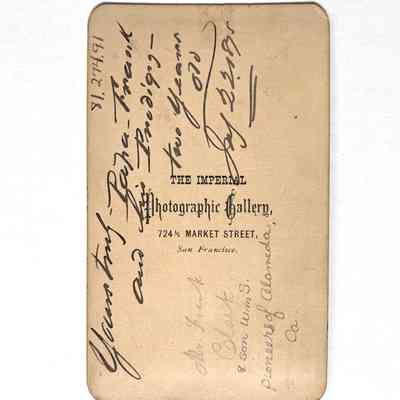 81.27491
Yours truly Papa-Frank
and his Prodigy-
two years
old
July 22, 1875
THE IMPERIAL
Photographic Gallery,
724½ MARKET STREET,
San Francisco.
Mr. Frank
Clark
& Son Wm S.
Pioneers of Alameda
Co